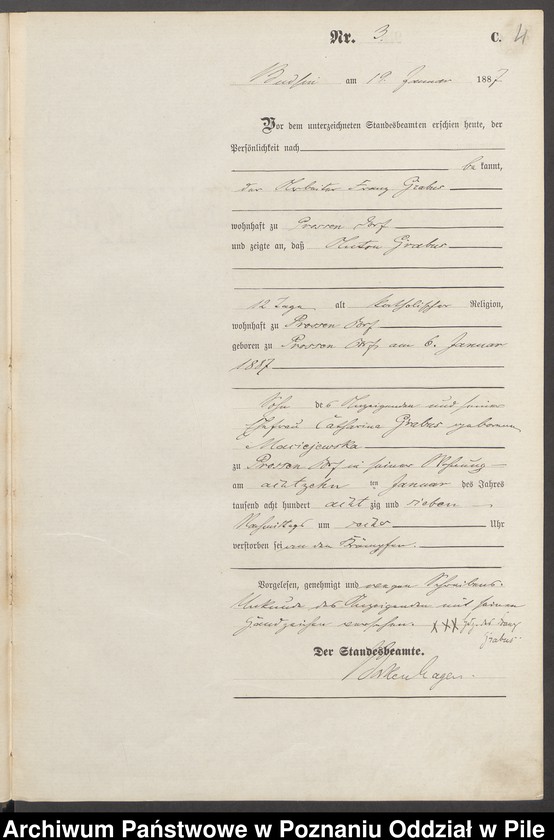 Nr. 3. C. 4
Budsin am 19. Januar 1887
Vor dem unterzeichneten Standesbeamten erschien heute, der
Persönlichkeit nach
be kannt,
der Arbeiter Franz Grabus
wohnhaft zu Prossen Dorf
und zeigte an, daß Anton Grabus
12 Tage alt katholischer Religion,
wohnhaft zu Prossen Dorf
geboren zu Prossen Dorf am 6. Januar
1887
Sohn des Anzeigenden und seiner
Ehefrau Catharina Grabus geborenen
Maciejewska
zu Prossen Dorf in seiner Wohnung
am achtzehn ten Januar des Jahres
tausend acht hundert acht zig und sieben
Nachmittags um sechs Uhr
verstorben sei an den Krämpfen.
Vorgelesen, genehmigt und wegen Schreibens-
Unkunde des Anzeigenden mit seinen
Handzeichen versehen. XXX Hdz. des Franz
Grabus
Der Standesbeamte.
Archiwum Państwowe w Poznaniu Oddział w Pile